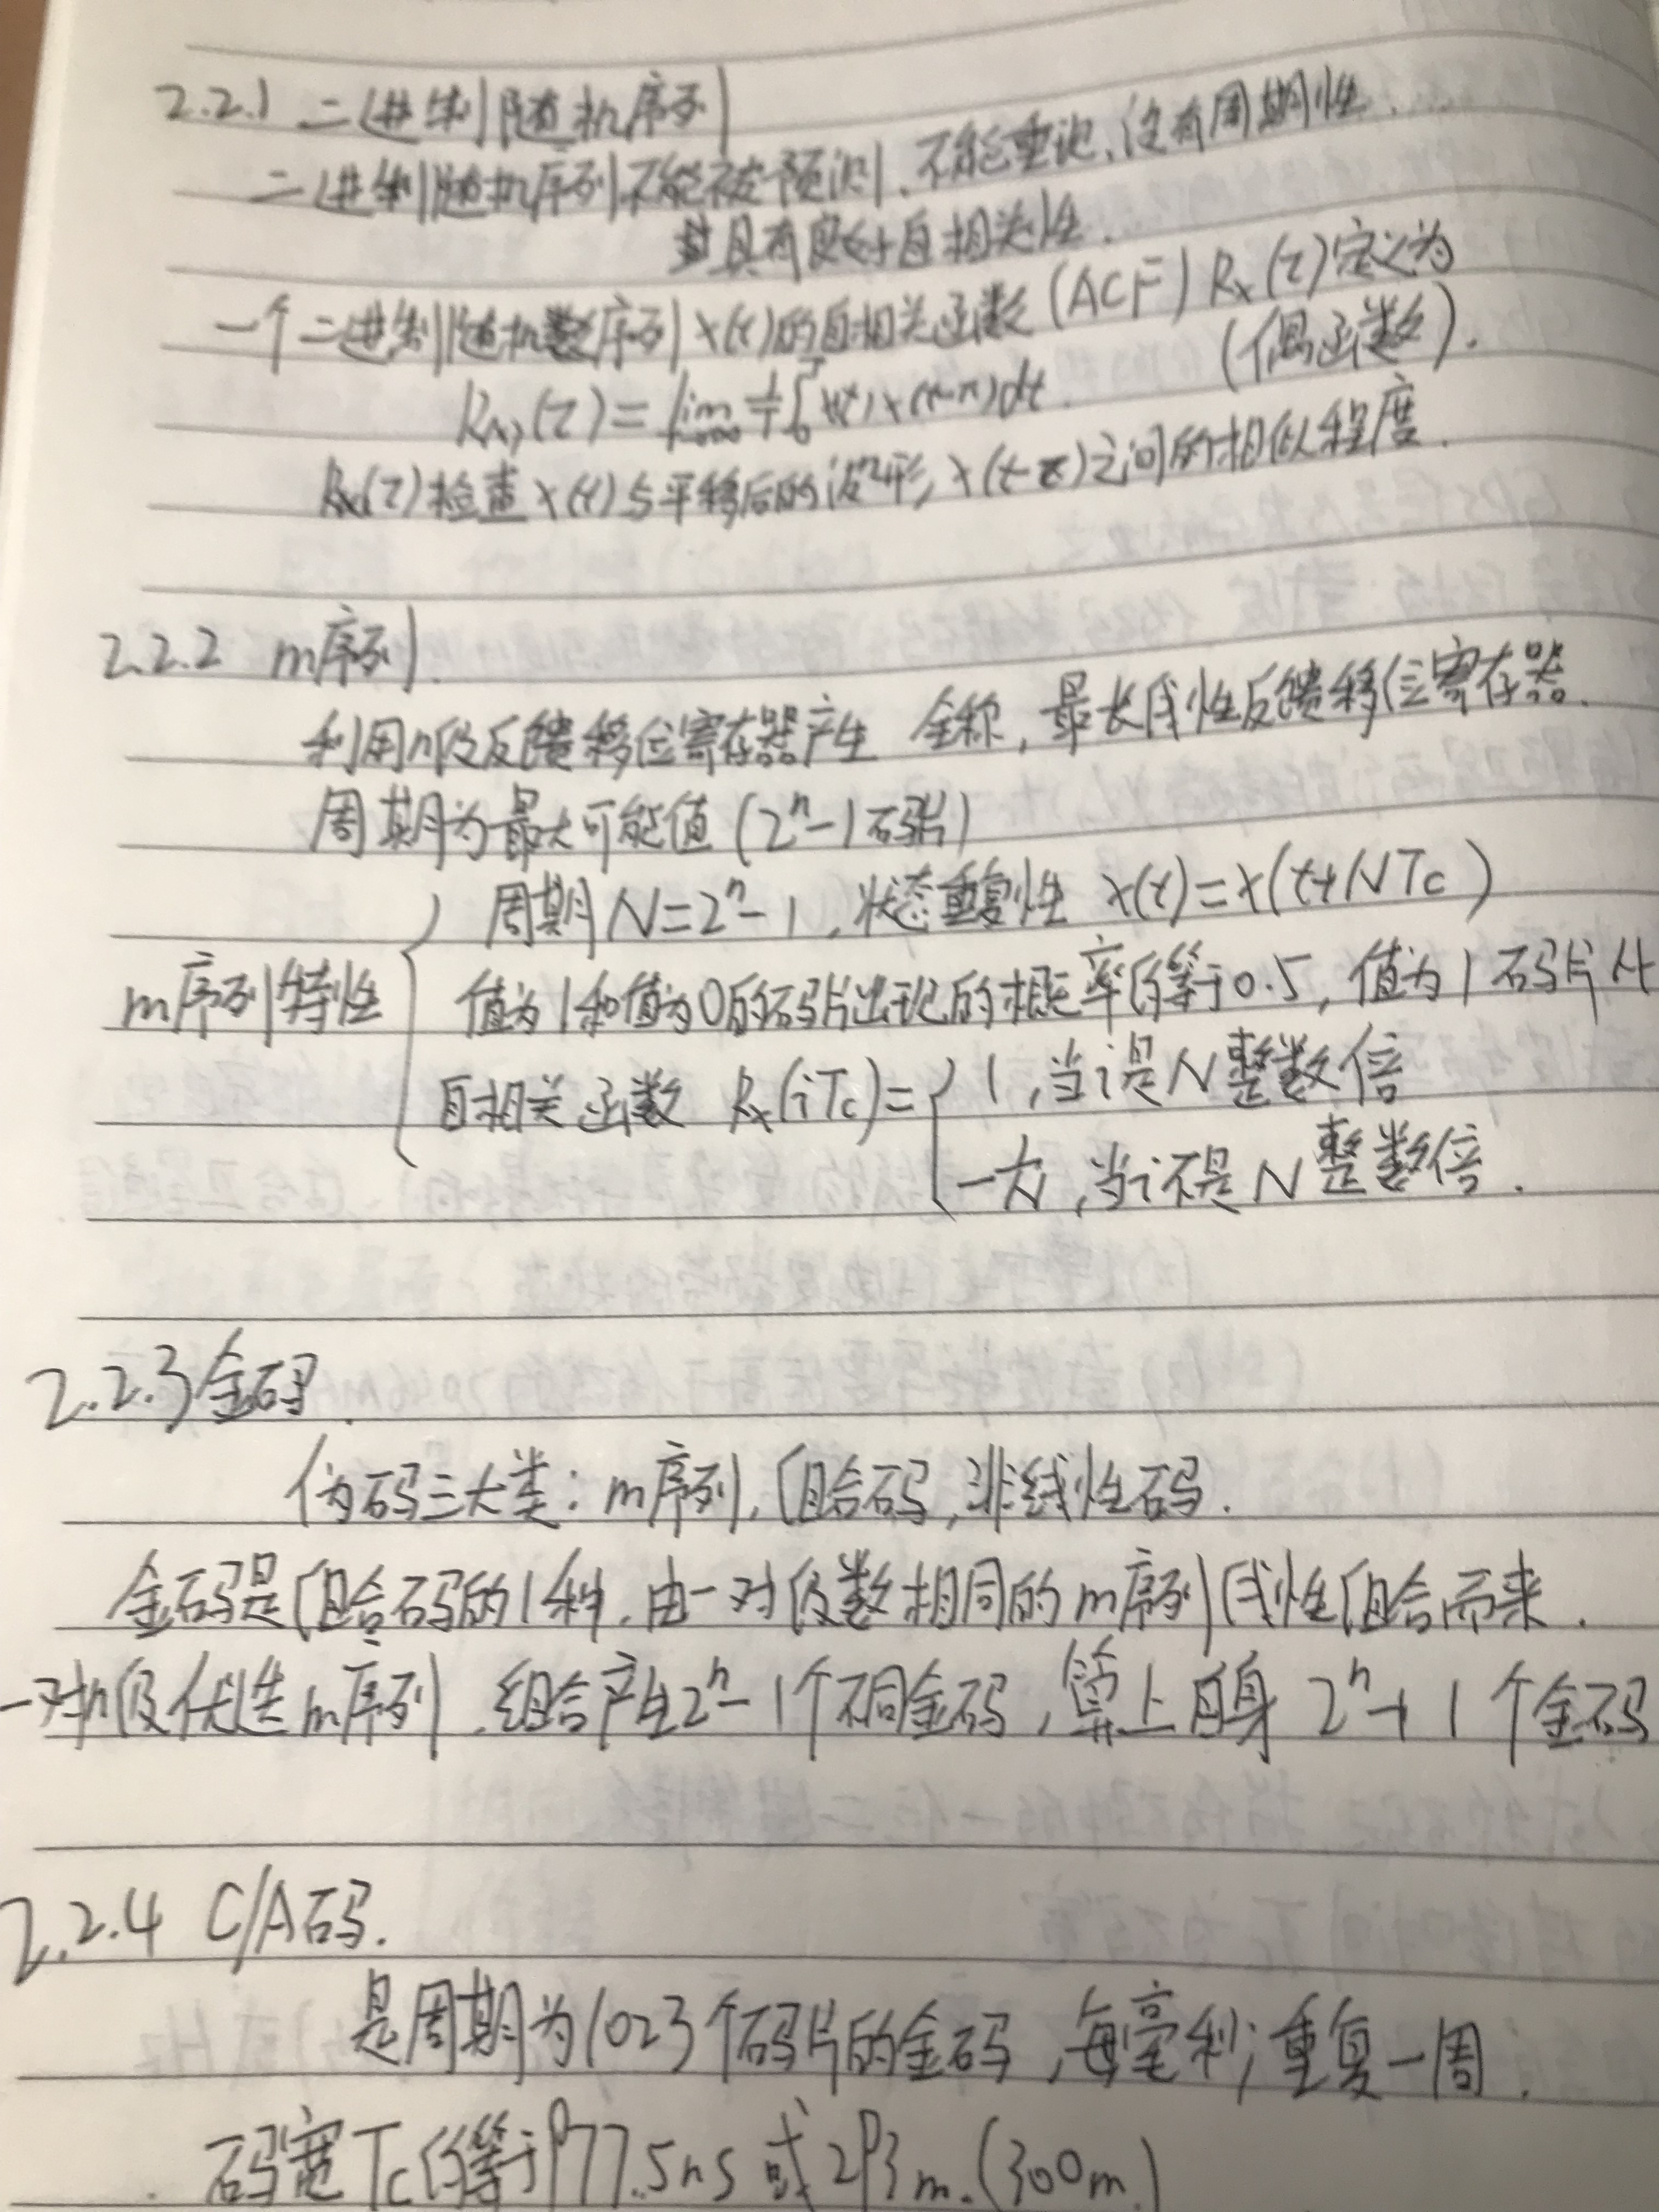 2.2.1 二进制随机序列
二进制随机序列不能被预测、不能重现、没有周期性.
且具有良好自相关性.
一个二进制随机数序列 x(t)的自相关函数 (ACF) Rx(τ)定义为
(偶函数).
Rx(τ) = lim 1/T ∫ x(t) x(t-τ) dt.
Rx(τ) 检查 x(t) 与平移后的波形 x(t-τ)之间的相似程度.
2.2.2 m序列.
利用n级反馈移位寄存器产生 全称, 最长线性反馈移位寄存器.
周期为最大可能值 (2ⁿ-1码片)
周期 N=2ⁿ-1, 状态重复性 x(t)=x(t+NTc)
m序列特性
值为1和值为0的码片出现的概率约等于0.5, 值为1码片
自相关函数 Rx(iTc)= { 1, 当i是N整数倍
-1/N, 当i不是N整数倍.
2.2.3 金码.
伪码三大类: m序列, 组合码, 非线性码.
金码是组合码的1种. 由一对级数相同的m序列线性组合而来.
一对n级优选m序列. 组合产生2ⁿ-1个不同金码, 算上自身 2ⁿ+1个金码
2.2.4 C/A码.
是周期为1023个码片的金码, 每毫秒重复一周.
码宽Tc约等于977.5ns 或 293m. (300m.)